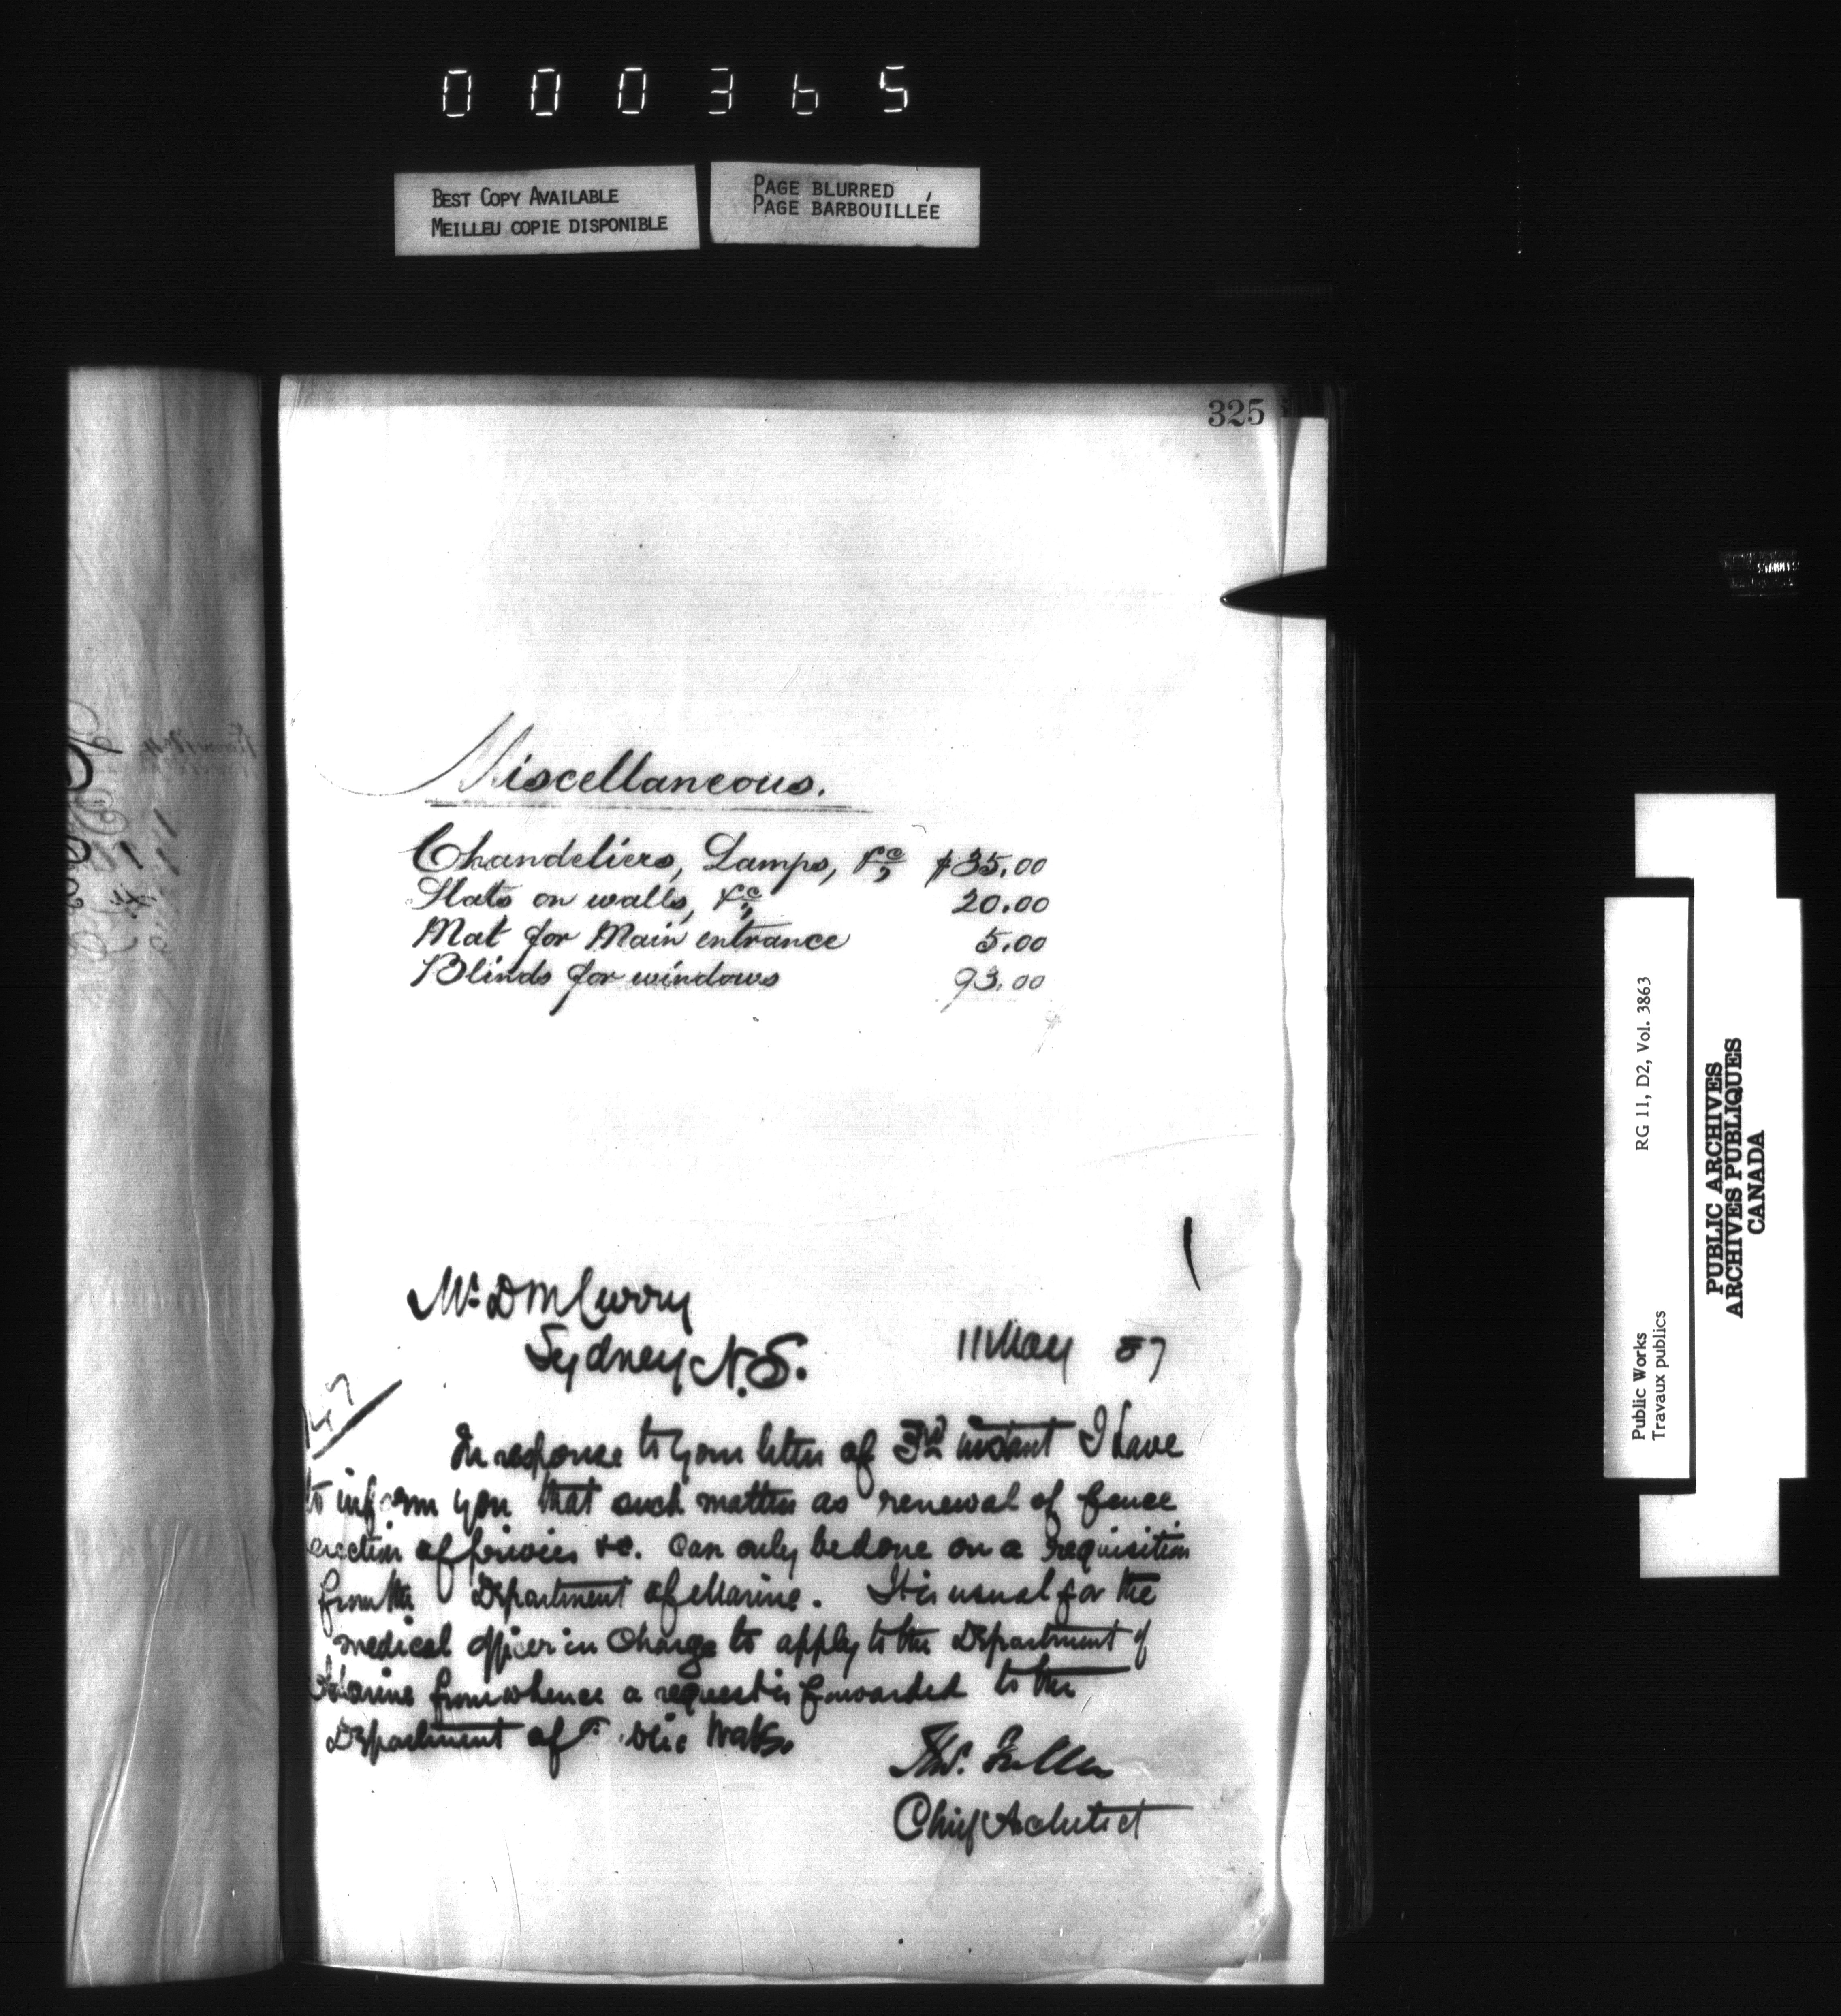 000365
BEST COPY AVAILABLE
MEILLEU COPIE DISPONIBLE
PAGE BLURRED
PAGE BARBOUILLÉE
325
Miscellaneous.
Chandeliers, Lamps, &c, $35.00
Slats on walls, &c, 20.00
Mat for Main entrance 5.00
Blinds for windows 93.00
Mr D McCurry
Sydney N.S. 11 May 87
In response to your letter of 3rd instant I have
to inform you that such matters as renewal of fence
erection of privies &c. can only be done on a requisition
from the Department of Marine. It is usual for the
medical officer in charge to apply to the Department of
Marine from whence a request is forwarded to the
Department of Works.
Thos. Fuller
Chief Architect
Public Works RG 11, D2, Vol. 3863
Travaux publics
PUBLIC ARCHIVES
ARCHIVES PUBLIQUES
CANADA